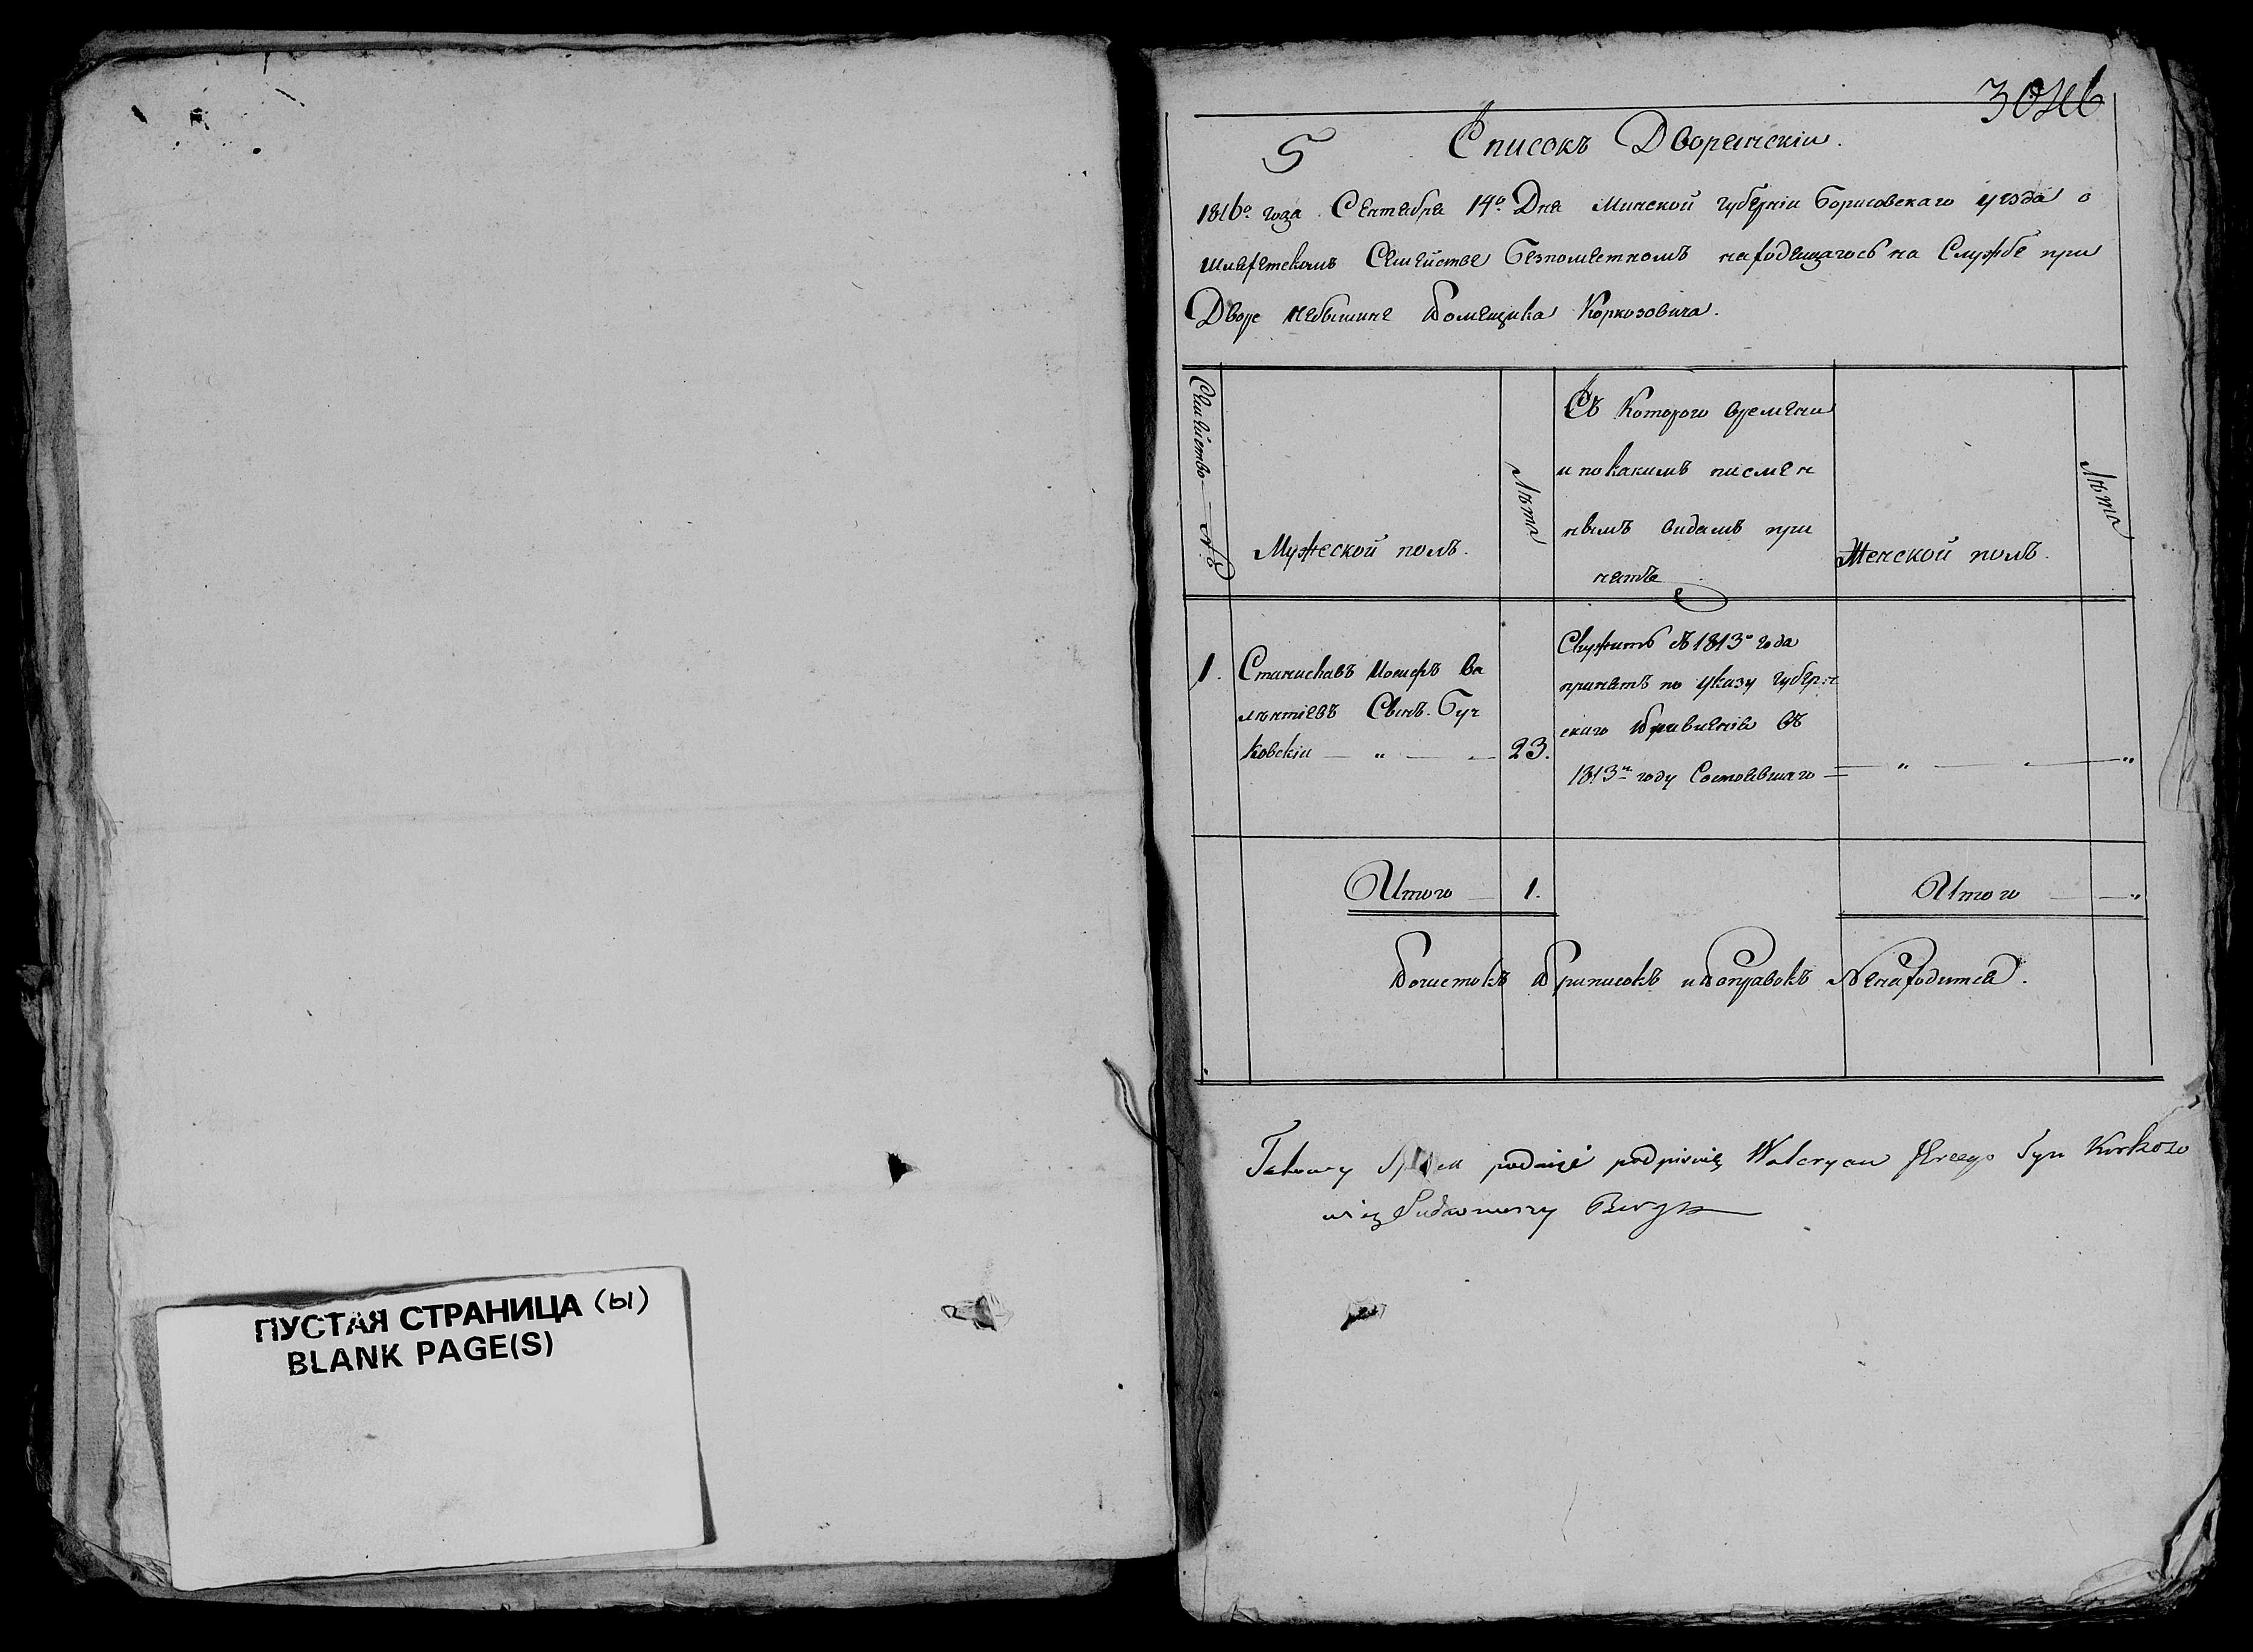 ПУСТАЯ СТРАНИЦА (ы)
BLANK PAGE(S)
5
Списокъ Дворянскіи.
1816º года Сентября 14º Дня Минской губерніи Борисовскаго уезда о
шляхетскомъ Семействе безпоместномъ находящагось на Службе при
Дворе Небышине Помещика Коркозовича.
Семейство № Мужеской полъ. Лѣта Съ Которого времени
и по какимъ писмен
нымъ видамъ при
нятъ
Женской полъ. Лѣта
1. Станиславъ Иосифъ Ва
лѣнтіевъ Сынъ Буч
ковскіи — " — 23.
Служитъ съ 1813º года
принятъ по указу губерн
скаго Правленія въ
1813м году Состоявшаго
Итого — 1. Итого — "
Почистокъ Приписокъ и Поправокъ Ненаходится.
Takowy podaiąc podpisuię Waleryan Syn Korkozo
wicz